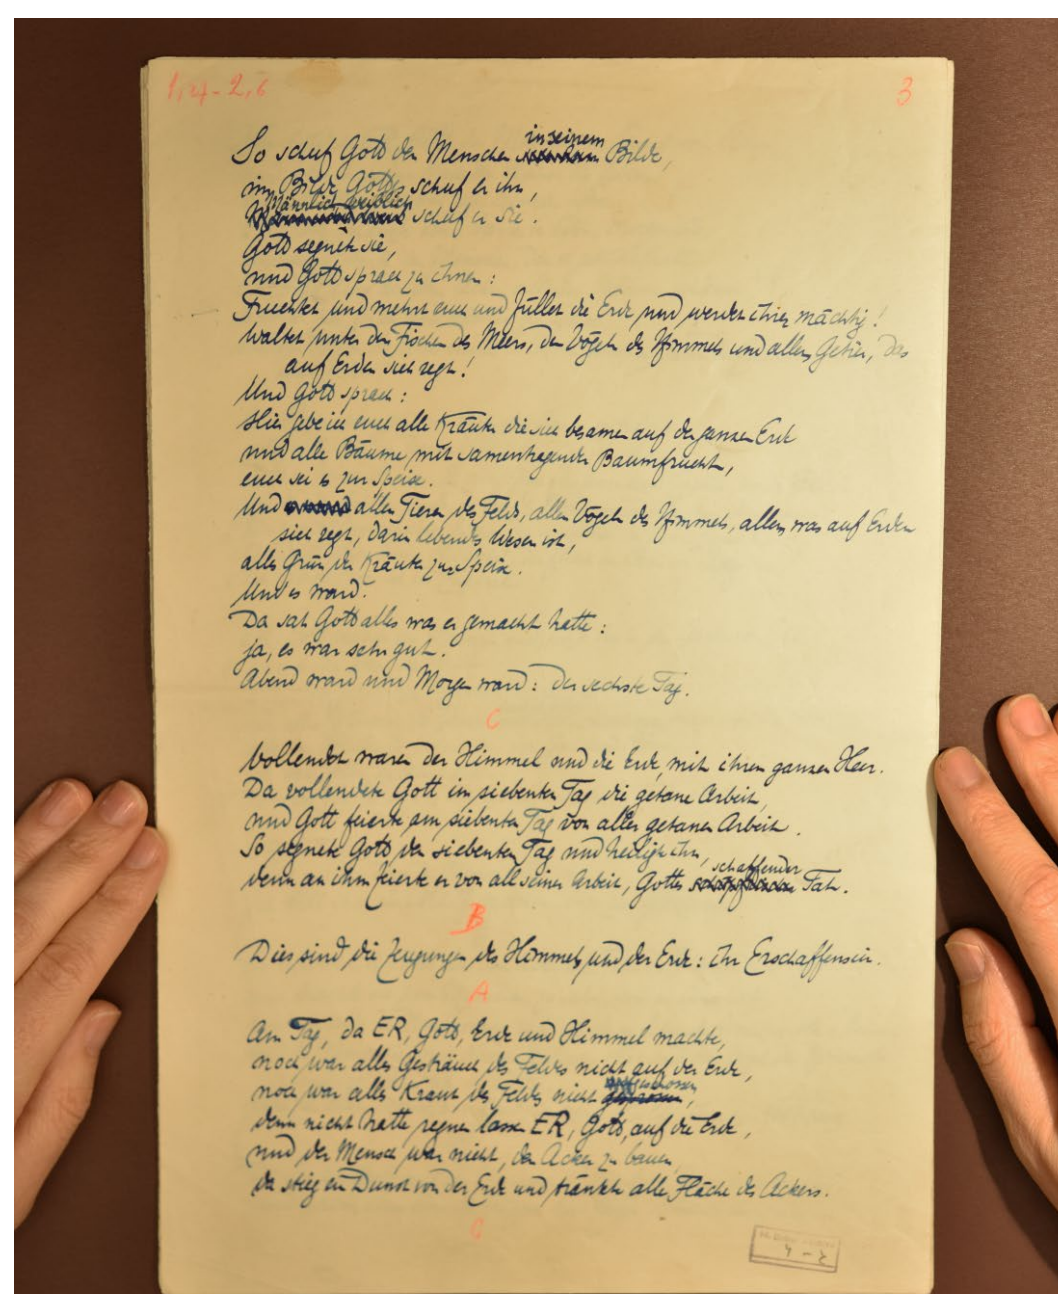 1,27-2,6
3
So schuf Gott den Menschen in seinem Bilde,
im Bilde Gottes schuf er ihn,
Männlich, weiblich schuf er sie.
Gott segnete sie,
und Gott sprach zu ihnen:
Fruchtet und mehrt euch und füllet die Erde und werdet ihrer mächtig!
waltet unter den Fischen des Meers, den Vögeln des Himmels und allem Getier, das
auf Erden sich regt!
Und Gott sprach:
Hier gebe ich euch alle Kräuter die sich besamen auf der ganzen Erde
und alle Bäume mit samentragender Baumfrucht,
euch sei es zur Speise.
Und allen Tieren des Felds, allen Vögeln des Himmels, allem, was auf Erden
sich regt, darin lebendes Wesen ist,
alles Grün der Kräuter zur Speise.
Und es ward.
Da sah Gott alles was er gemacht hatte:
ja, es war sehr gut.
Abend ward und Morgen ward: der sechste Tag.
C
Vollendet waren der Himmel und die Erde, mit ihrem ganzen Heer.
Da vollendete Gott im siebenten Tag die getane Arbeit,
und Gott feierte am siebenten Tag von aller getanen Arbeit.
So segnete Gott den siebenten Tag und heiligte ihn,
denn an ihm feierte er von all seiner Arbeit, Gottes schaffender Tat.
B
Dies sind die Zeugungen des Himmels und der Erde: ihr Erschaffensein.
A
Am Tag, da ER, Gott, Erde und Himmel machte,
noch war alles Gesträuch des Feldes nicht auf der Erde,
noch war alles Kraut des Feldes nicht aufgeschossen,
denn nicht hatte regnen lassen ER, Gott, auf die Erde,
und der Mensch war nicht, den Acker zu bauen,
da stieg ein Dunst von der Erde und tränkte alle Fläche des Ackers.
C